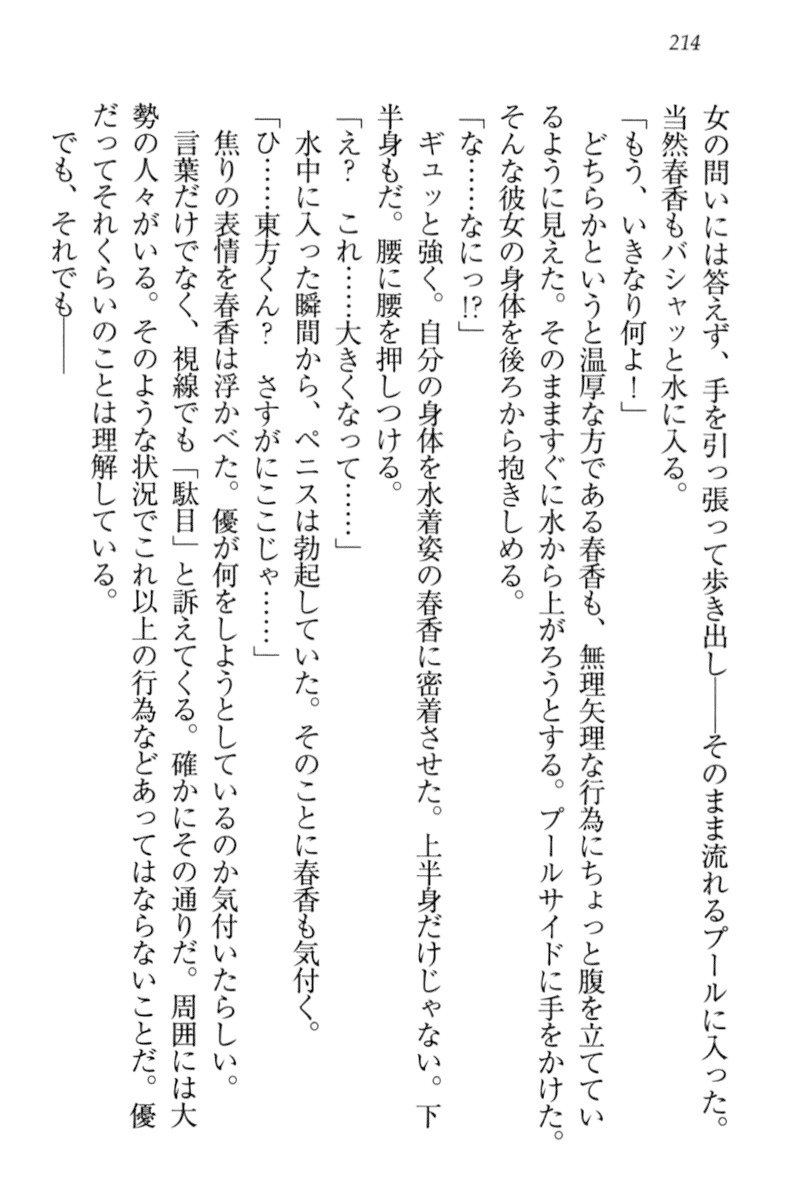 214
女の問いには答えず、手を引っ張って歩き出し――そのまま流れるプールに入った。
当然春香もバシャッと水に入る。
「もう、いきなり何よ！」
どちらかというと温厚な方である春香も、無理矢理な行為にちょっと腹を立ててい
るように見えた。そのまますぐに水から上がろうとする。プールサイドに手をかけた。
そんな彼女の身体を後ろから抱きしめる。
「な……なにっ!?」
ギュッと強く。自分の身体を水着姿の春香に密着させた。上半身だけじゃない。下
半身もだ。腰に腰を押しつける。
「え？　これ……大きくなって……」
水中に入った瞬間から、ペニスは勃起していた。そのことに春香も気付く。
「ひ……東方くん？　さすがにここじゃ……」
焦りの表情を春香は浮かべた。優が何をしようとしているのか気付いたらしい。
言葉だけでなく、視線でも「駄目」と訴えてくる。確かにその通りだ。周囲には大
勢の人々がいる。そのような状況でこれ以上の行為などあってはならないことだ。優
だってそれくらいのことは理解している。
でも、それでも――